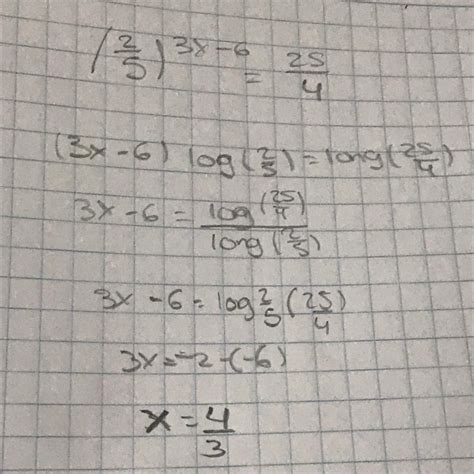 (2/5)^3x-6 = 25/4
(3x-6) log(2/5) = long(25/4)
3x-6 = log(25/4) / long(2/5)
3x-6 = log 2/5 (25/4)
3x=-2-(-6)
x = 4/3